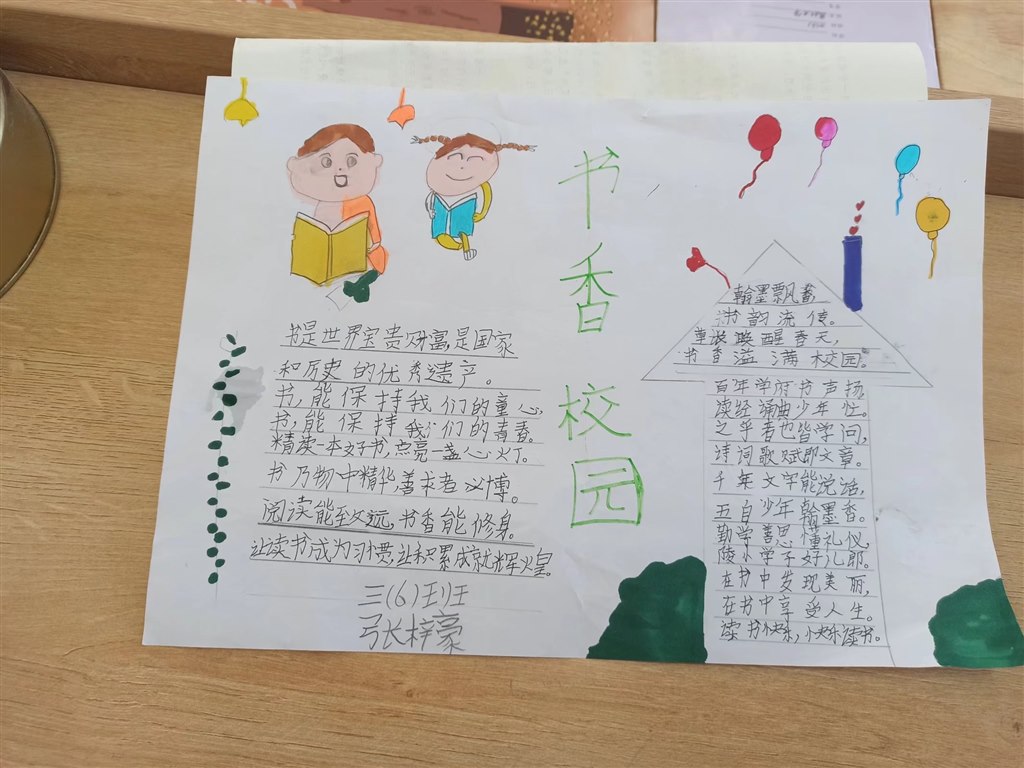 书香校园
书是世界宝贵财富是国家
和历史的优秀遗产。
书,能保持我们的童心,
书,能保持我们的青春。
精读一本好书,点亮一盏心灯。
书乃物中精华,善求者必博。
阅读能致远,书香能修身。
让读书成为习惯,让积累成就辉煌。
三(6)班
张梓豪
翰墨飘香,
书韵流传。
重浓唤醒春天,
书香溢满校园。
百年学府书声扬,
读经诵曲少年忙。
之乎者也皆学问,
诗词歌赋即文章。
千年文字能说话,
五自少年翰墨香。
勤学善思懂礼仪,
陵小学子好儿郎。
在书中发现美丽,
在书中享受人生。
读书快乐,快乐读书。